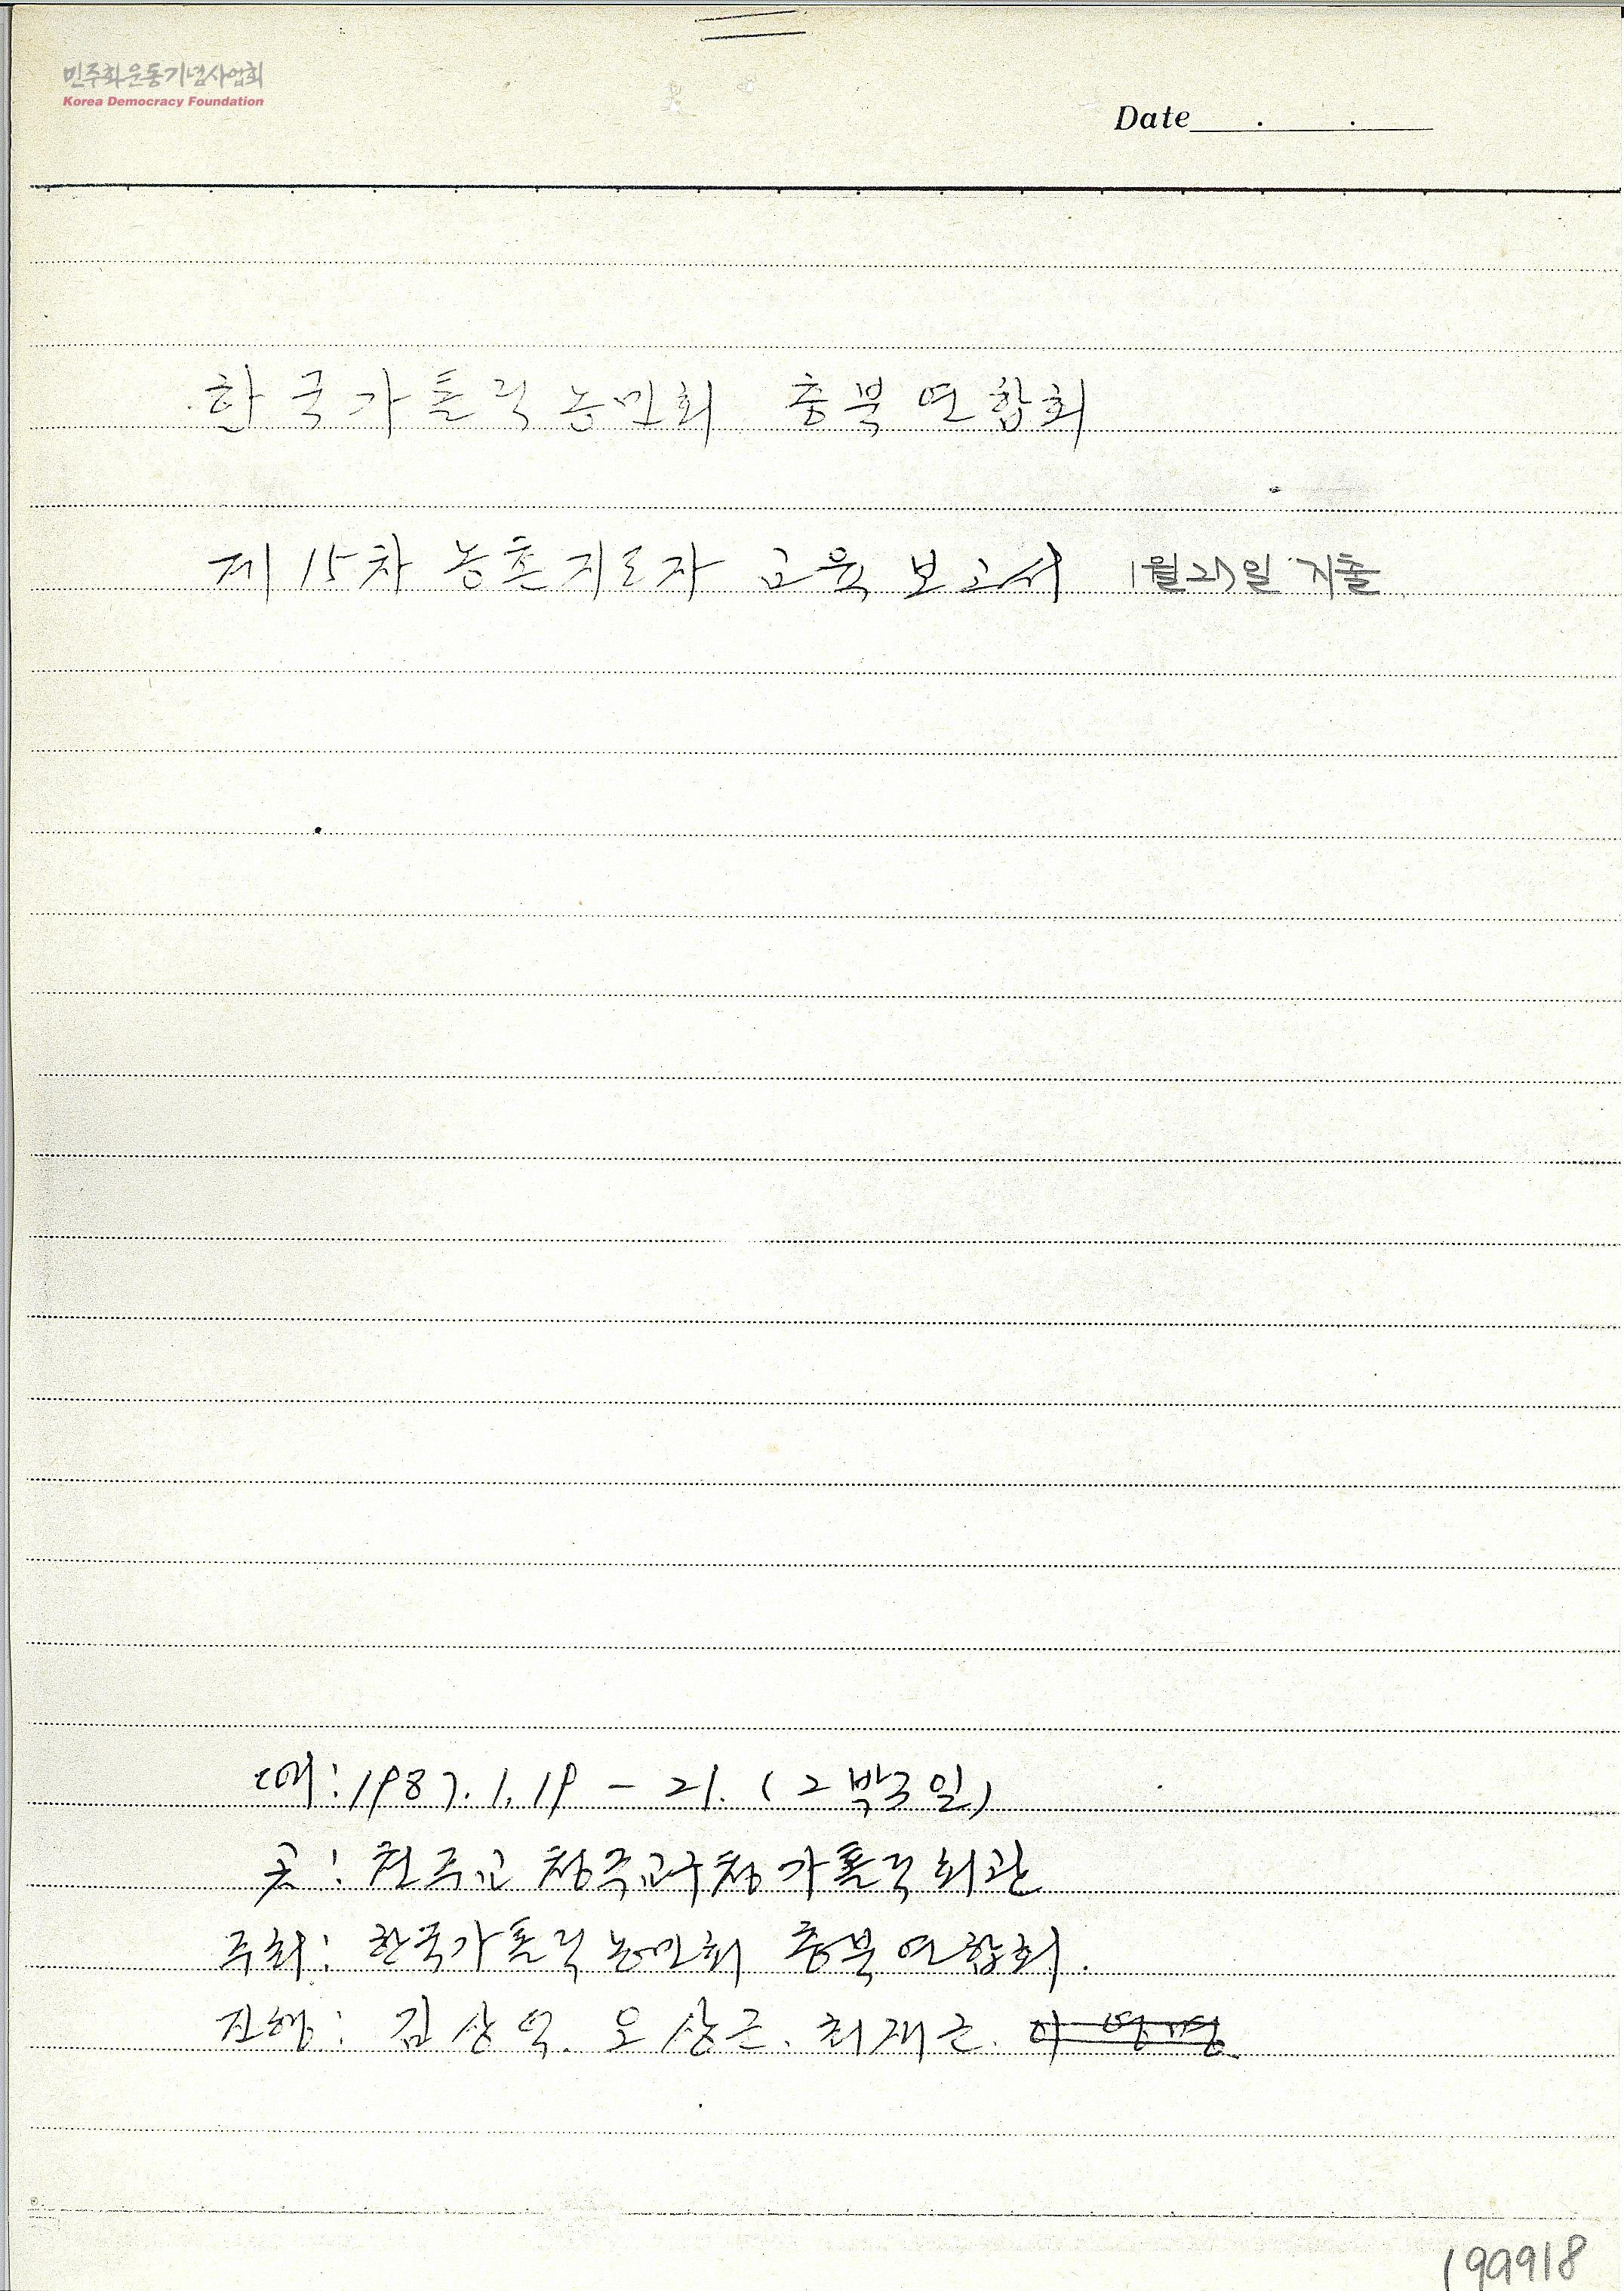 민주화운동기념사업회
Korea Democracy Foundation
Date . .
한국가톨릭농민회 충북연합회
제 15차 농촌지도자 교육 보고서 1월27일 지출
때: 1987. 1. 19 - 21. (2박3일)
곳: 천주교 청주교구청 가톨릭회관
주최: 한국가톨릭농민회 충북연합회.
진행: 김상억. 오상근. 최재근.
199918